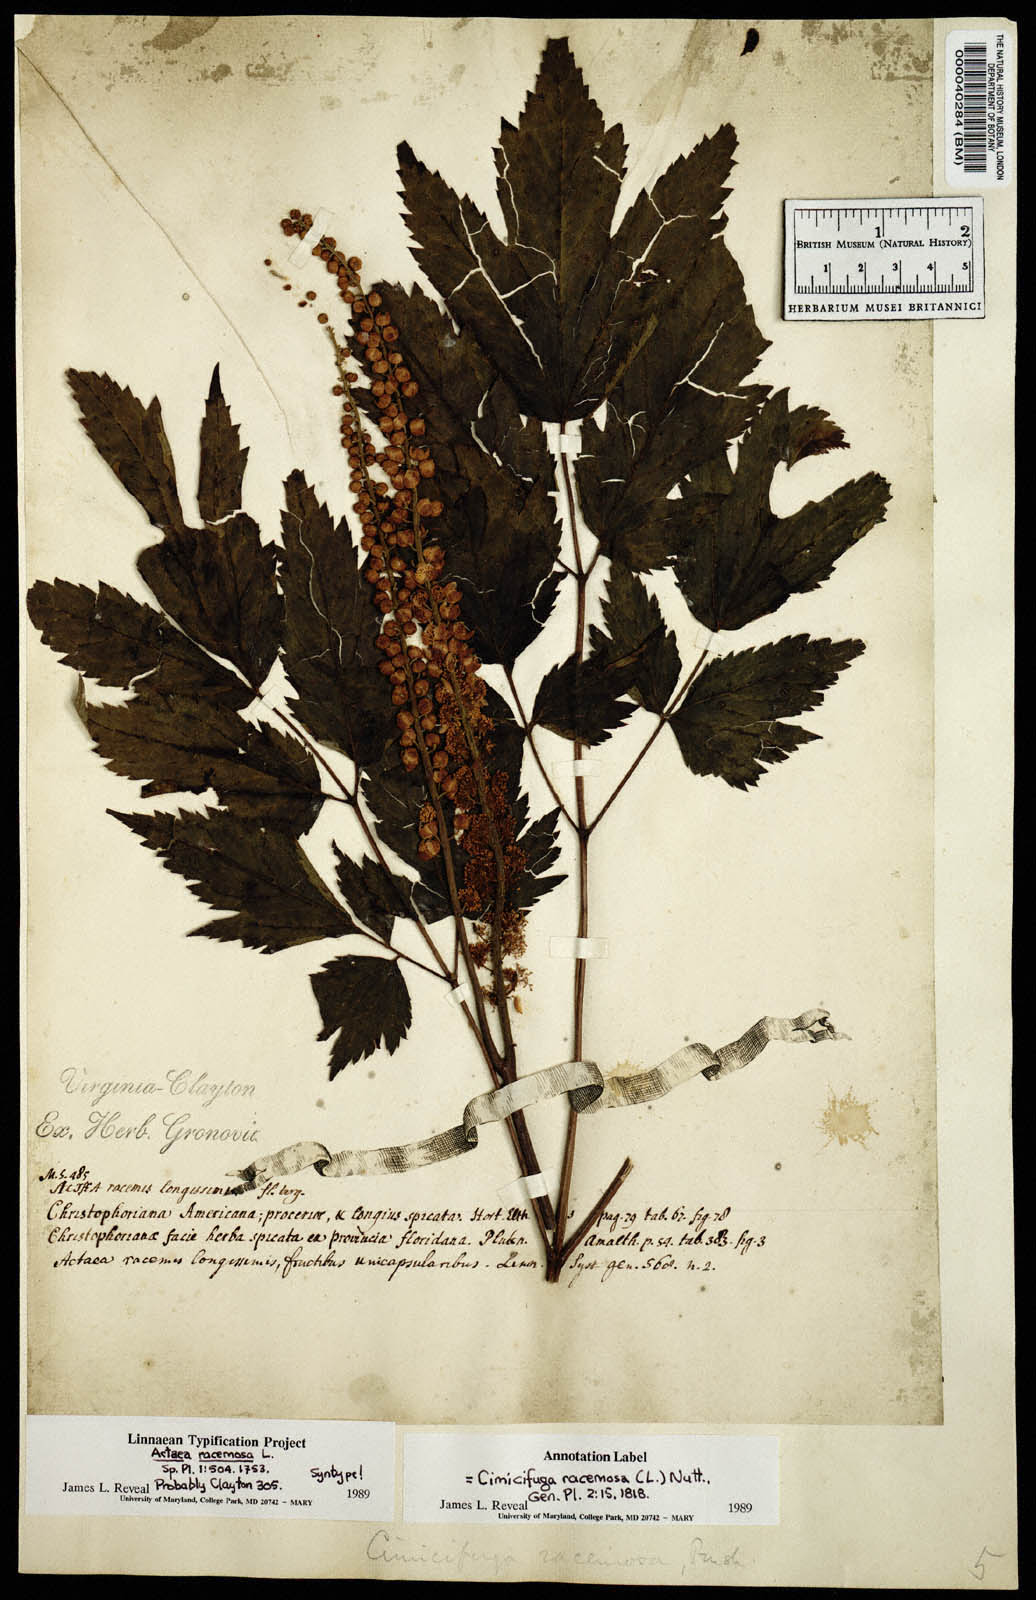 THE NATURAL HISTORY MUSEUM, LONDON
DEPARTMENT OF BOTANY
000040284 (BM)
1 2
BRITISH MUSEUM (NATURAL HISTORY)
1 2 3 4 5
HERBARIUM MUSEI BRITANNICI
Virginia-Clayton
Ex. Herb. Gronovii
M.S. 485
ACTÆA racemis longissimis fl. virg.
Christophoriana Americana, procerior, & longius spicata. Hort. Elth pag. 79 tab. 67. fig. 78
Christophorianæ facie herba spicata ex provincia floridana. Pluken. Amalth. p. 54. tab. 383. fig. 3
Actaea racemis longissimis, fructibus unicapsularibus. Linn. Syst. gen. 568. n. 2.
Linnaean Typification Project
Actaea racemosa L.
Sp. Pl. 1:504. 1753. Syntype!
James L. Reveal Probably Clayton 305. 1989
University of Maryland, College Park, MD 20742 – MARY
Annotation Label
= Cimicifuga racemosa (L.) Nutt.,
Gen. Pl. 2:15, 1818.
James L. Reveal 1989
University of Maryland, College Park, MD 20742 – MARY
Cimicifuga racemosa, Pursh.
5